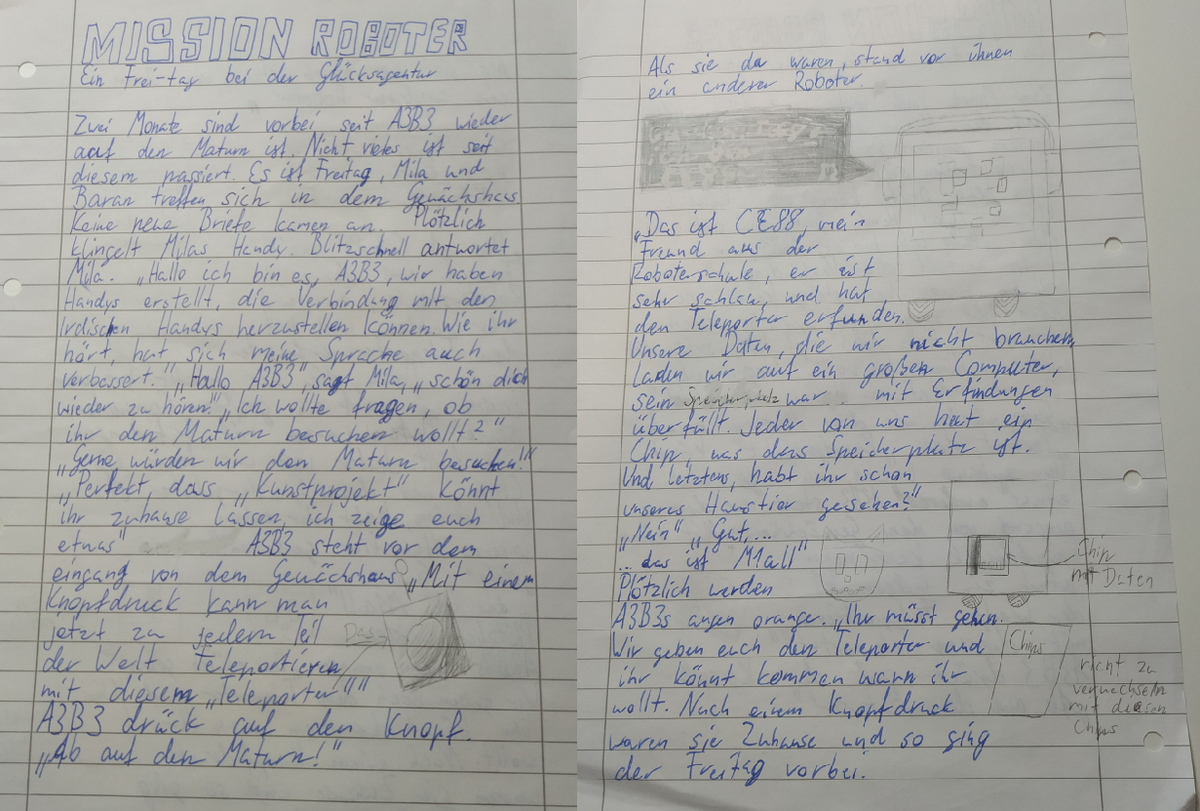 MISSION ROBOTER
Ein Frei-tag bei der Glücksagentur
Zwei Monate sind vorbei seit A3B3 wieder
auf den Maturn ist. Nicht vieles ist seit
diesem passiert. Es ist Freitag, Mila und
Baran treffen sich in dem Gewächshaus
Keine neue Briefe kamen an. Plötzlich
klingelt Milas Handy. Blitzschnell antwortet
Mila. „Hallo ich bin es, A3B3, wir haben
Handys erstellt, die Verbindung mit den
Irdischen Handys herzustellen können. Wie ihr
hört, hat sich meine Sprache auch
verbessert." „Hallo A3B3", sagt Mila, „schön dich
wieder zu hören." „Ich wollte fragen, ob
ihr den Maturn besuchen wollt?"
„Gerne würden wir den Maturn besuchen!"
„Perfekt, dass „Kunstprojekt" könnt
ihr zuhause lassen, ich zeige euch
etwas" A3B3 steht vor dem
eingang von dem Gewächshaus „Mit einem
Knopfdruck kann man
jetzt zu jedem Teil
der Welt Teleportieren
mit diesem „Teleporter""
Das
A3B3 drück auf den Knopf.
„Ab auf den Maturn!"
Als sie da waren, stand vor ihnen
ein anderer Roboter.
„Das ist CE88, mein
Freund aus der
Roboterschule, er ist
sehr schlau, und hat
den Teleporter erfunden.
Unsere Daten, die wir nicht brauchen,
Laden wir auf ein großen Computer,
sein Speicherplatz war mit Erfindungen
überfüllt. Jeder von uns hat ein
Chip, was das Speicherplatz ist.
Und letztens, habt ihr schon
unseres Haustier gesehen?"
„Nein" „Gut,...
...das ist M1all"
Chip
mit Daten
Plötzlich werden
A3B3s augen orange. „Ihr müsst gehen.
Wir geben euch den Teleporter und
ihr könnt kommen wann ihr
wollt. Nach einem Knopfdruck
waren sie Zuhause und so ging
der Freitag vorbei.
Chips
nicht zu
verwechseln
mit diesen
Chips